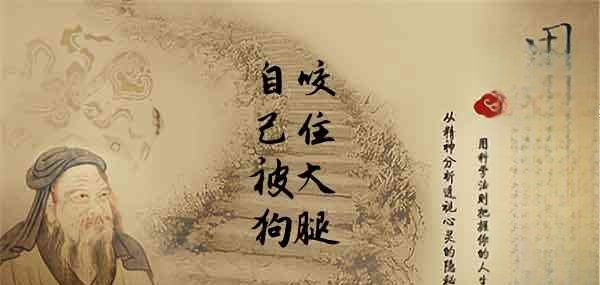 自己被狗
咬住大腿
从精神分析透视心灵的隐秘
用科学法则把握你的人生